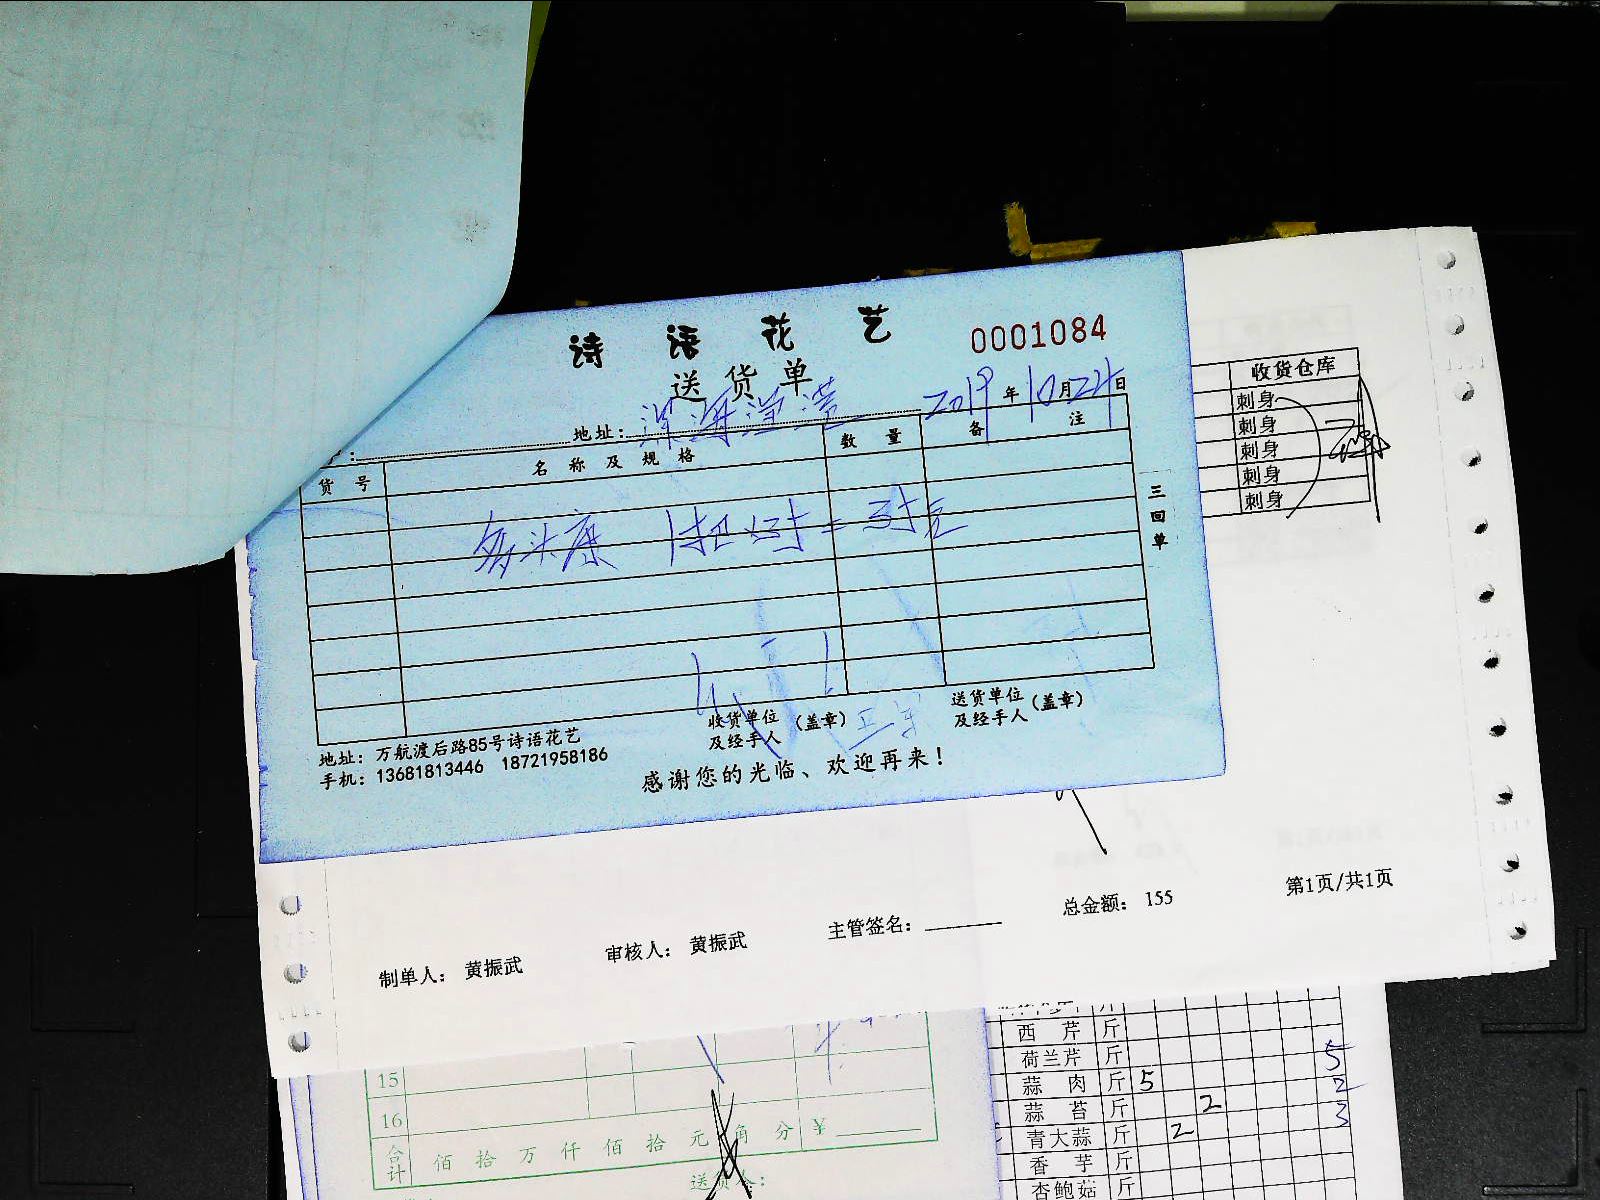 诗语花艺
0001084
送货单
2019年10月24日
地址：深海洋湾
货号 名称及规格 数量 备注
多头康 1扎
三回单
收货单位及经手人（盖章）
送货单位及经手人（盖章）
地址：万航渡后路85号诗语花艺
手机：13681813446 18721958186
感谢您的光临、欢迎再来！
收货仓库
刺身
刺身
刺身
刺身
刺身
制单人： 黄振武 审核人： 黄振武 主管签名： 总金额： 155 第1页/共1页
15
16
合计 佰 拾 万 仟 佰 拾 元 角 分 ¥
西芹 斤
荷兰芹 斤 5
蒜肉 斤 5 2
蒜苔 斤 2 3
青大蒜 斤 2
香芋 斤
杏鲍菇 斤